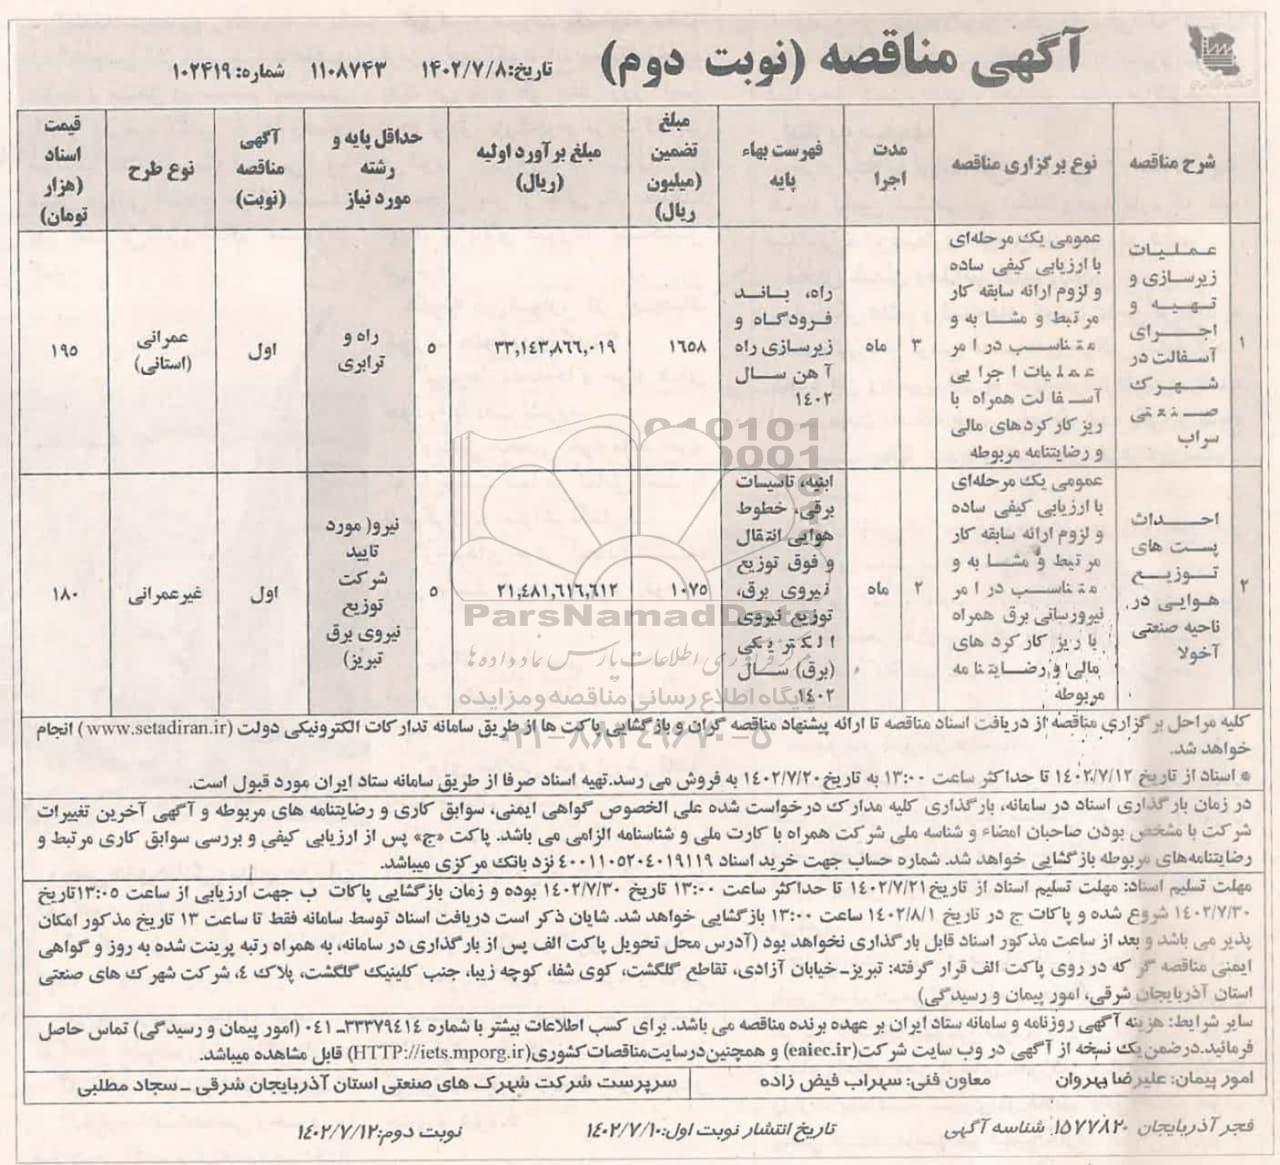 آگهی مناقصه (نوبت دوم)
تاریخ:۱۴۰۲/۷/۸ ۱۱۰۸۷۴۳ شماره: ۱۰۲۴۱۹
شرح مناقصه
نوع برگزاری مناقصه
مدت
اجرا
فهرست بهاء
پایه
مبلغ
تضمین
(میلیون
ریال)
مبلغ برآورد اولیه
(ریال)
حداقل پایه و
رشته
مورد نیاز
آگهی
مناقصه
(نوبت)
نوع طرح
قیمت
اسناد
(هزار
تومان)
۱
عملیات
زیرسازی و
تهیه و
اجرای
آسفالت در
شهرک
صنعتی
سراب
عمومی یک مرحله‌ای
با ارزیابی کیفی ساده
و لزوم ارائه سابقه کار
مرتبط و مشابه و
متناسب در امر
عملیات اجرایی
آسفالت همراه با
ریز کارکردهای مالی
و رضایتنامه مربوطه
۳ ماه
راه، باند
فرودگاه و
زیرسازی راه
آهن سال
۱۴۰۲
۱۶۵۸
۳۳,۱۴۳,۸۶۶,۰۱۹
۵
راه و
ترابری
اول
عمرانی
(استانی)
۱۹۵
۲
احداث
پست های
توزیع
هوایی در
ناحیه صنعتی
آخولا
عمومی یک مرحله‌ای
با ارزیابی کیفی ساده
و لزوم ارائه سابقه کار
مرتبط و مشابه و
متناسب در امر
نیرورسانی برق همراه
با ریز کارکرد های
مالی و رضایتنامه
مربوطه
۲ ماه
ابنیه، تاسیسات
برقی، خطوط
هوایی انتقال
و فوق توزیع
نیروی برق،
توزیع نیروی
الکتریکی
(برق) سال
۱۴۰۲
۱۰۷۵
۲۱,۴۸۱,۶۱۶,۶۱۲
۵
نیرو( مورد
تایید
شرکت
توزیع
نیروی برق
تبریز)
اول
غیرعمرانی
۱۸۰
ParsNamadData
مرکز فرآوری اطلاعات پارس نماد داده ها
پایگاه اطلاع رسانی مناقصه و مزایده
۰۲۱-۸۸۳۴۹۶۷۰-۵
کلیه مراحل برگزاری مناقصه از دریافت اسناد مناقصه تا ارائه پیشنهاد مناقصه گران و بازگشایی پاکت ها از طریق سامانه تدارکات الکترونیکی دولت (www.setadiran.ir) انجام
خواهد شد.
* اسناد از تاریخ ۱۴۰۲/۷/۱۲ تا حداکثر ساعت ۱۳:۰۰ به تاریخ ۱۴۰۲/۷/۲۰ به فروش می رسد.تهیه اسناد صرفا از طریق سامانه ستاد ایران مورد قبول است.
در زمان بارگذاری اسناد در سامانه، بارگذاری کلیه مدارک درخواست شده علی الخصوص گواهی ایمنی، سوابق کاری و رضایتنامه های مربوطه و آگهی آخرین تغییرات
شرکت با مشخص بودن صاحبان امضاء و شناسه ملی شرکت همراه با کارت ملی و شناسنامه الزامی می باشد. پاکت «ج» پس از ارزیابی کیفی و بررسی سوابق کاری مرتبط و
رضایتنامه‌های مربوطه بازگشایی خواهد شد. شماره حساب جهت خرید اسناد ۴۰۰۱۱۰۵۲۰۴۰۱۹۱۱۹ نزد بانک مرکزی میباشد.
مهلت تسلیم اسناد: مهلت تسلیم اسناد از تاریخ ۱۴۰۲/۷/۲۱ تا حداکثر ساعت ۱۳:۰۰ تاریخ ۱۴۰۲/۷/۳۰ بوده و زمان بازگشایی پاکات ب جهت ارزیابی از ساعت ۱۳:۰۵تاریخ
۱۴۰۲/۷/۳۰ شروع شده و پاکات ج در تاریخ ۱۴۰۲/۸/۱ ساعت ۱۳:۰۰ بازگشایی خواهد شد. شایان ذکر است دریافت اسناد توسط سامانه فقط تا ساعت ۱۳ تاریخ مذکور امکان
پذیر می باشد و بعد از ساعت مذکور اسناد قابل بارگذاری نخواهد بود (آدرس محل تحویل پاکت الف پس از بارگذاری در سامانه، به همراه رتبه پرینت شده به روز و گواهی
ایمنی مناقصه گر که در روی پاکت الف قرار گرفته: تبریز-خیابان آزادی، تقاطع گلگشت، کوی شفا، کوچه زیبا، جنب کلینیک گلگشت، پلاک ۴، شرکت شهرک های صنعتی
استان آذربایجان شرقی، امور پیمان و رسیدگی)
سایر شرایط: هزینه آگهی روزنامه و سامانه ستاد ایران بر عهده برنده مناقصه می باشد. برای کسب اطلاعات بیشتر با شماره ۳۳۳۷۹۴۱۴-۰۴۱ (امور پیمان و رسیدگی) تماس حاصل
فرمائید.درضمن یک نسخه از آگهی در وب سایت شرکت(eaiec.ir) و همچنین‌درسایت‌مناقصات‌کشوری(HTTP://iets.mporg.ir) قابل مشاهده میباشد.
امور پیمان: علیرضا بهروان معاون فنی: سهراب فیض زاده سرپرست شرکت شهرک های صنعتی استان آذربایجان شرقی - سجاد مطلبی
فجر آذربایجان ۱۵۷۷۸۲۰ شناسه آگهی تاریخ انتشار نوبت اول:۱۴۰۲/۷/۱۰ نوبت دوم:۱۴۰۲/۷/۱۲